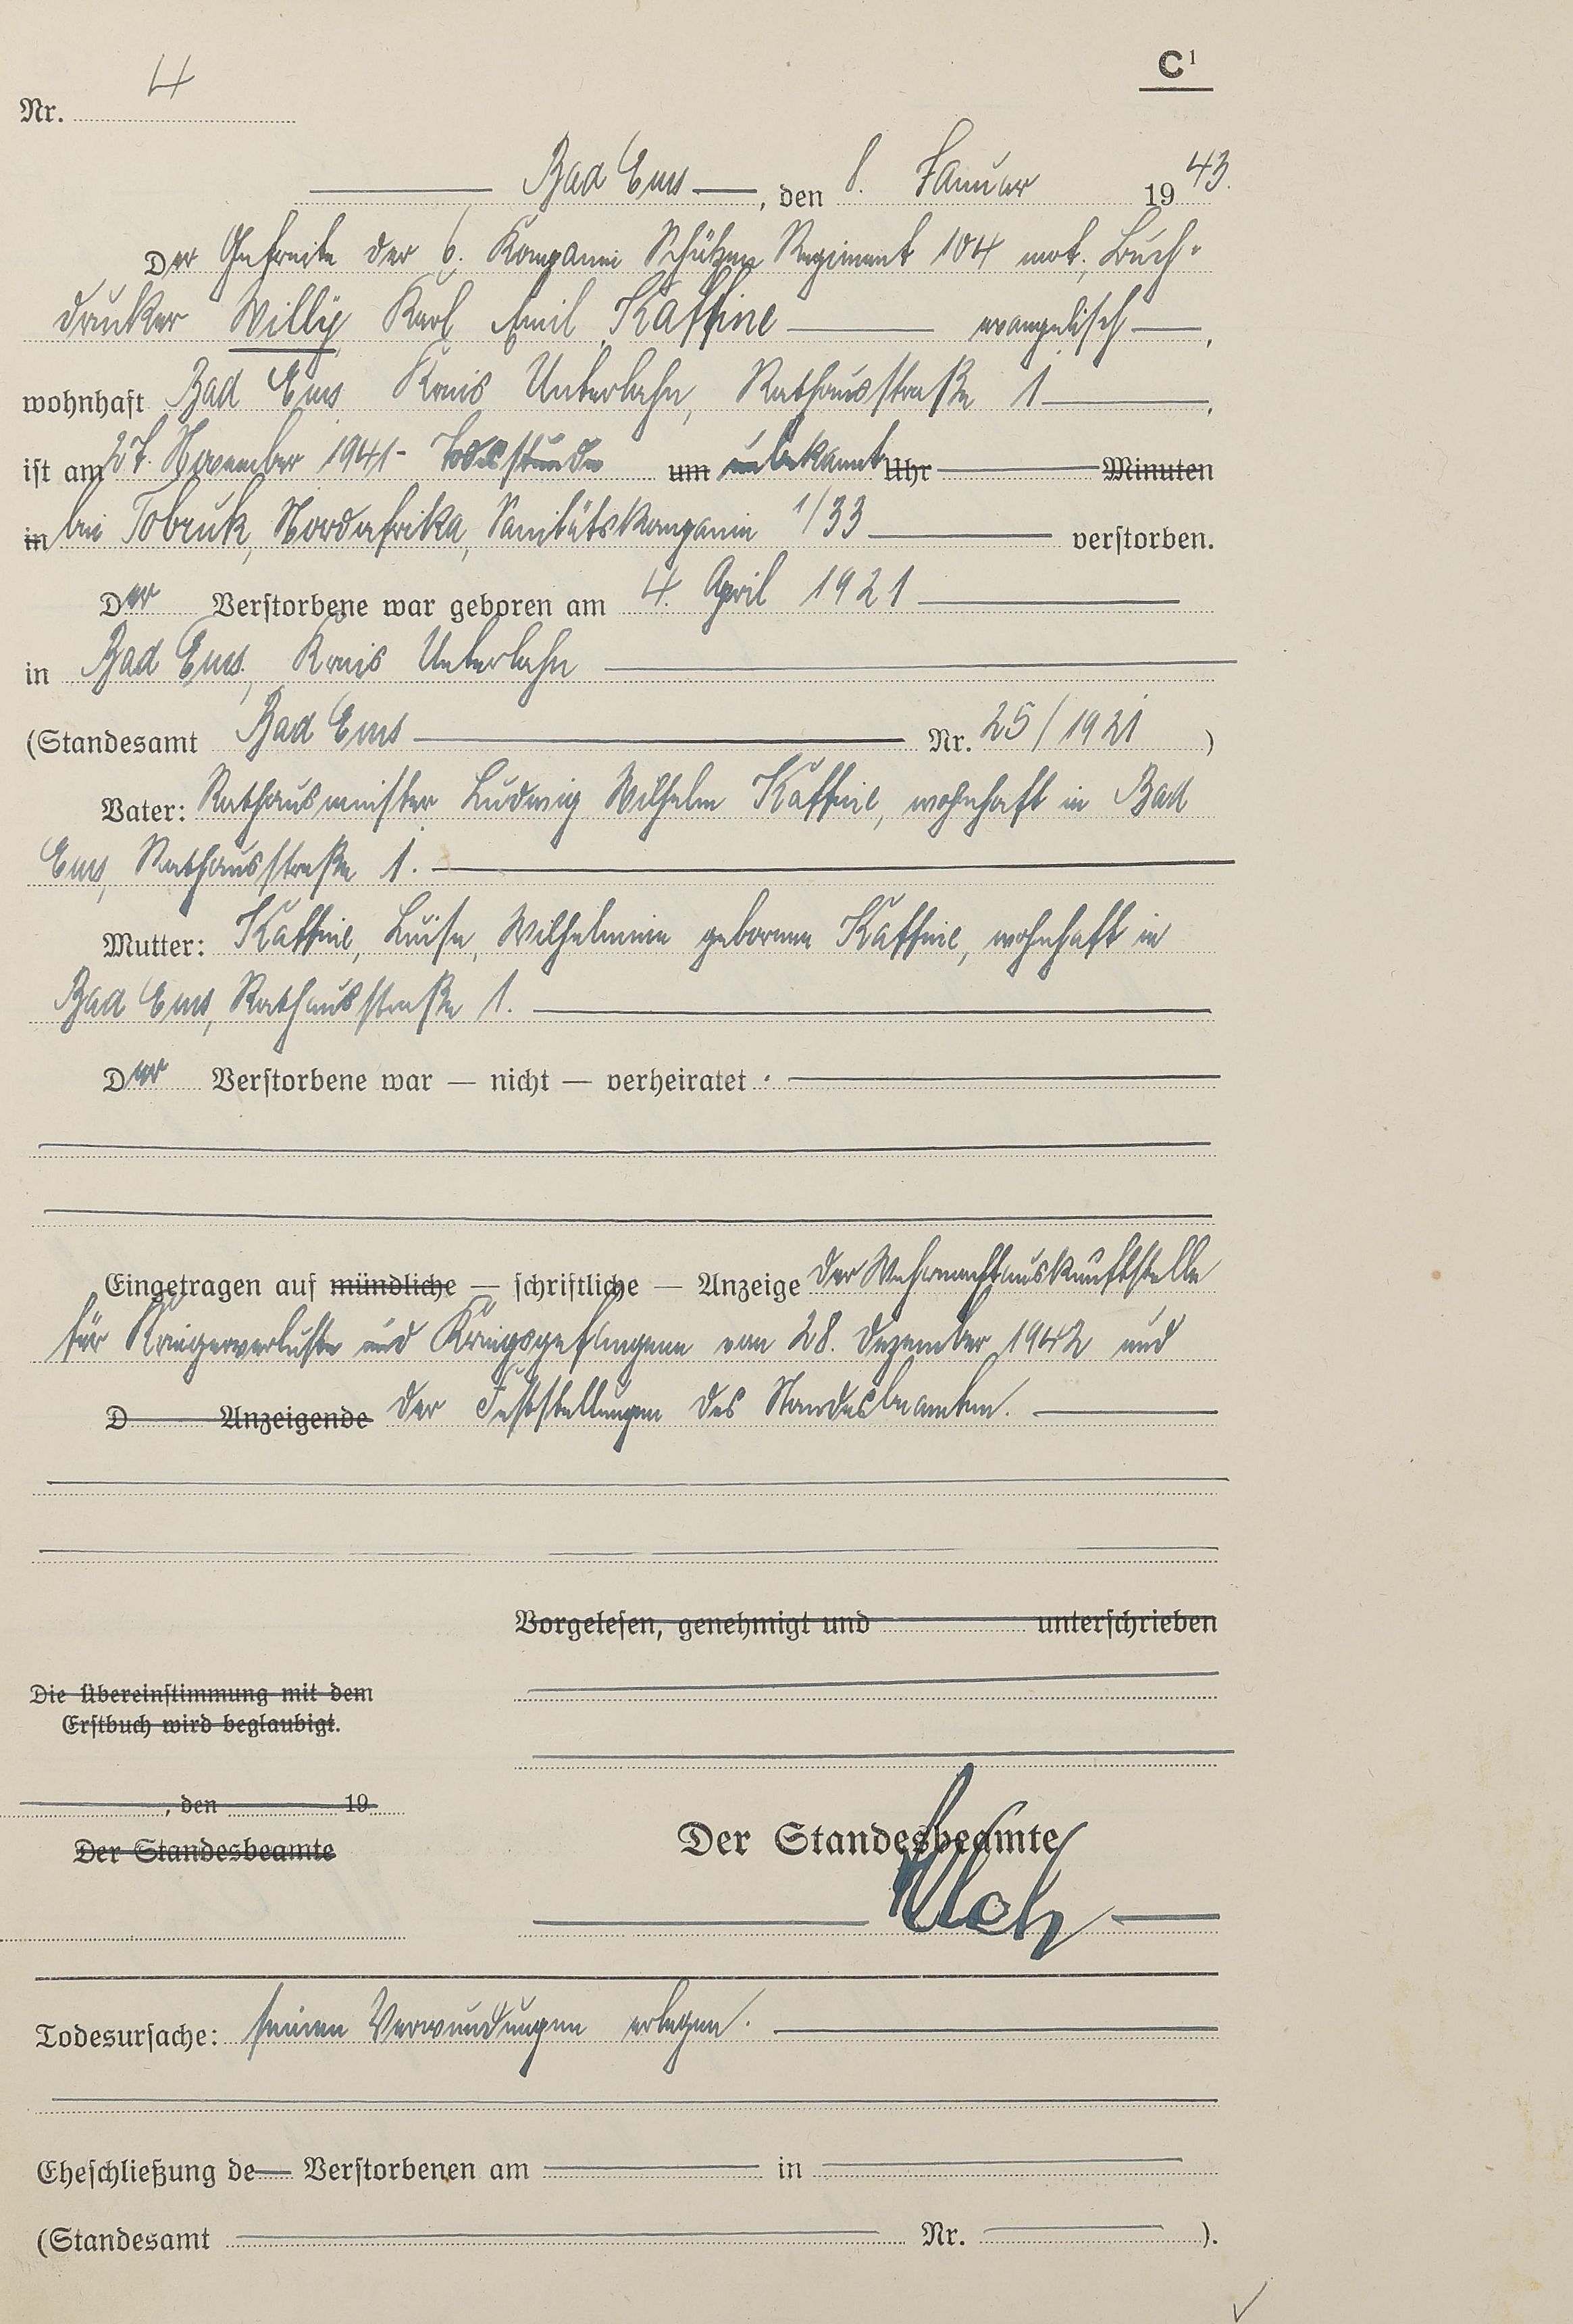 C¹
Nr. 4
Bad Ems, den 8. Januar 1943.
Der Gefreite der 6. Kompanie Schützen Regiment 104 mot., Buch-
drucker Willy Karl Emil Kaffine evangelisch,
wohnhaft Bad Ems Kreis Unterlahn, Rathausstraße 1,
ist am 27. November 1941 - Todesstunde um unbekannt Uhr Minuten
in bei Tobruk, Nordafrika, Sanitätskompanie 1/33 verstorben.
Der Verstorbene war geboren am 4. April 1921
in Bad Ems, Kreis Unterlahn
(Standesamt Bad Ems Nr. 25/1921)
Vater: Rathausmeister Ludwig Wilhelm Kaffine, wohnhaft in Bad
Ems, Rathausstraße 1.
Mutter: Kaffine, Luise, Wilhelmine geborene Kaffine, wohnhaft in
Bad Ems, Rathausstraße 1.
Der Verstorbene war — nicht — verheiratet.
Eingetragen auf mündliche — schriftliche — Anzeige der Wehrmachtauskunftstelle
für Kriegerverluste und Kriegsgefangene vom 28. Dezember 1942 und
D Anzeigende der Feststellungen des Standesbeamten.
Vorgelesen, genehmigt und unterschrieben
Die Übereinstimmung mit dem
Erstbuch wird beglaubigt.
, den 19
Der Standesbeamte
Der Standesbeamte
Todesursache: seinen Verwundungen erlegen.
Eheschließung de Verstorbenen am in
(Standesamt Nr. ).